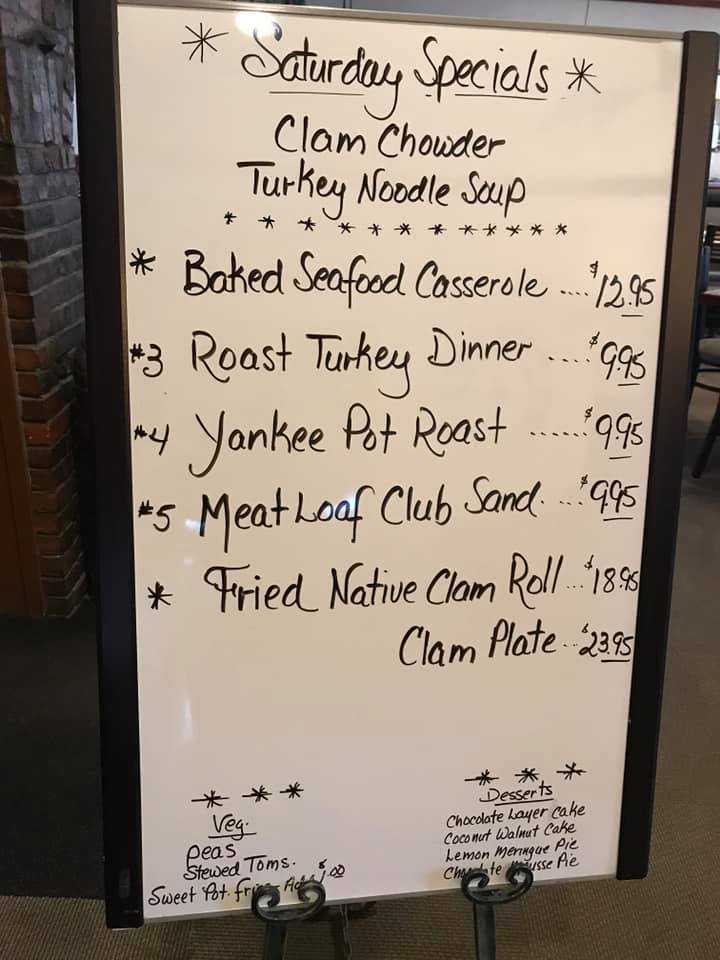 * Saturday Specials *
Clam Chowder
Turkey Noodle Soup
* * * * * * * * * * * *
* Baked Seafood Casserole .... $12.95
#3 Roast Turkey Dinner .... $9.95
#4 Yankee Pot Roast ...... $9.95
#5 Meat Loaf Club Sand. ... $9.95
* Fried Native Clam Roll ... $18.95
Clam Plate ... $23.95
* * *
Veg.
Peas
Stewed Toms.
Sweet Pot. Add $1.00
* * *
Desserts
Chocolate Layer Cake
Coconut Walnut Cake
Lemon Meringue Pie
Chocolate Mousse Pie